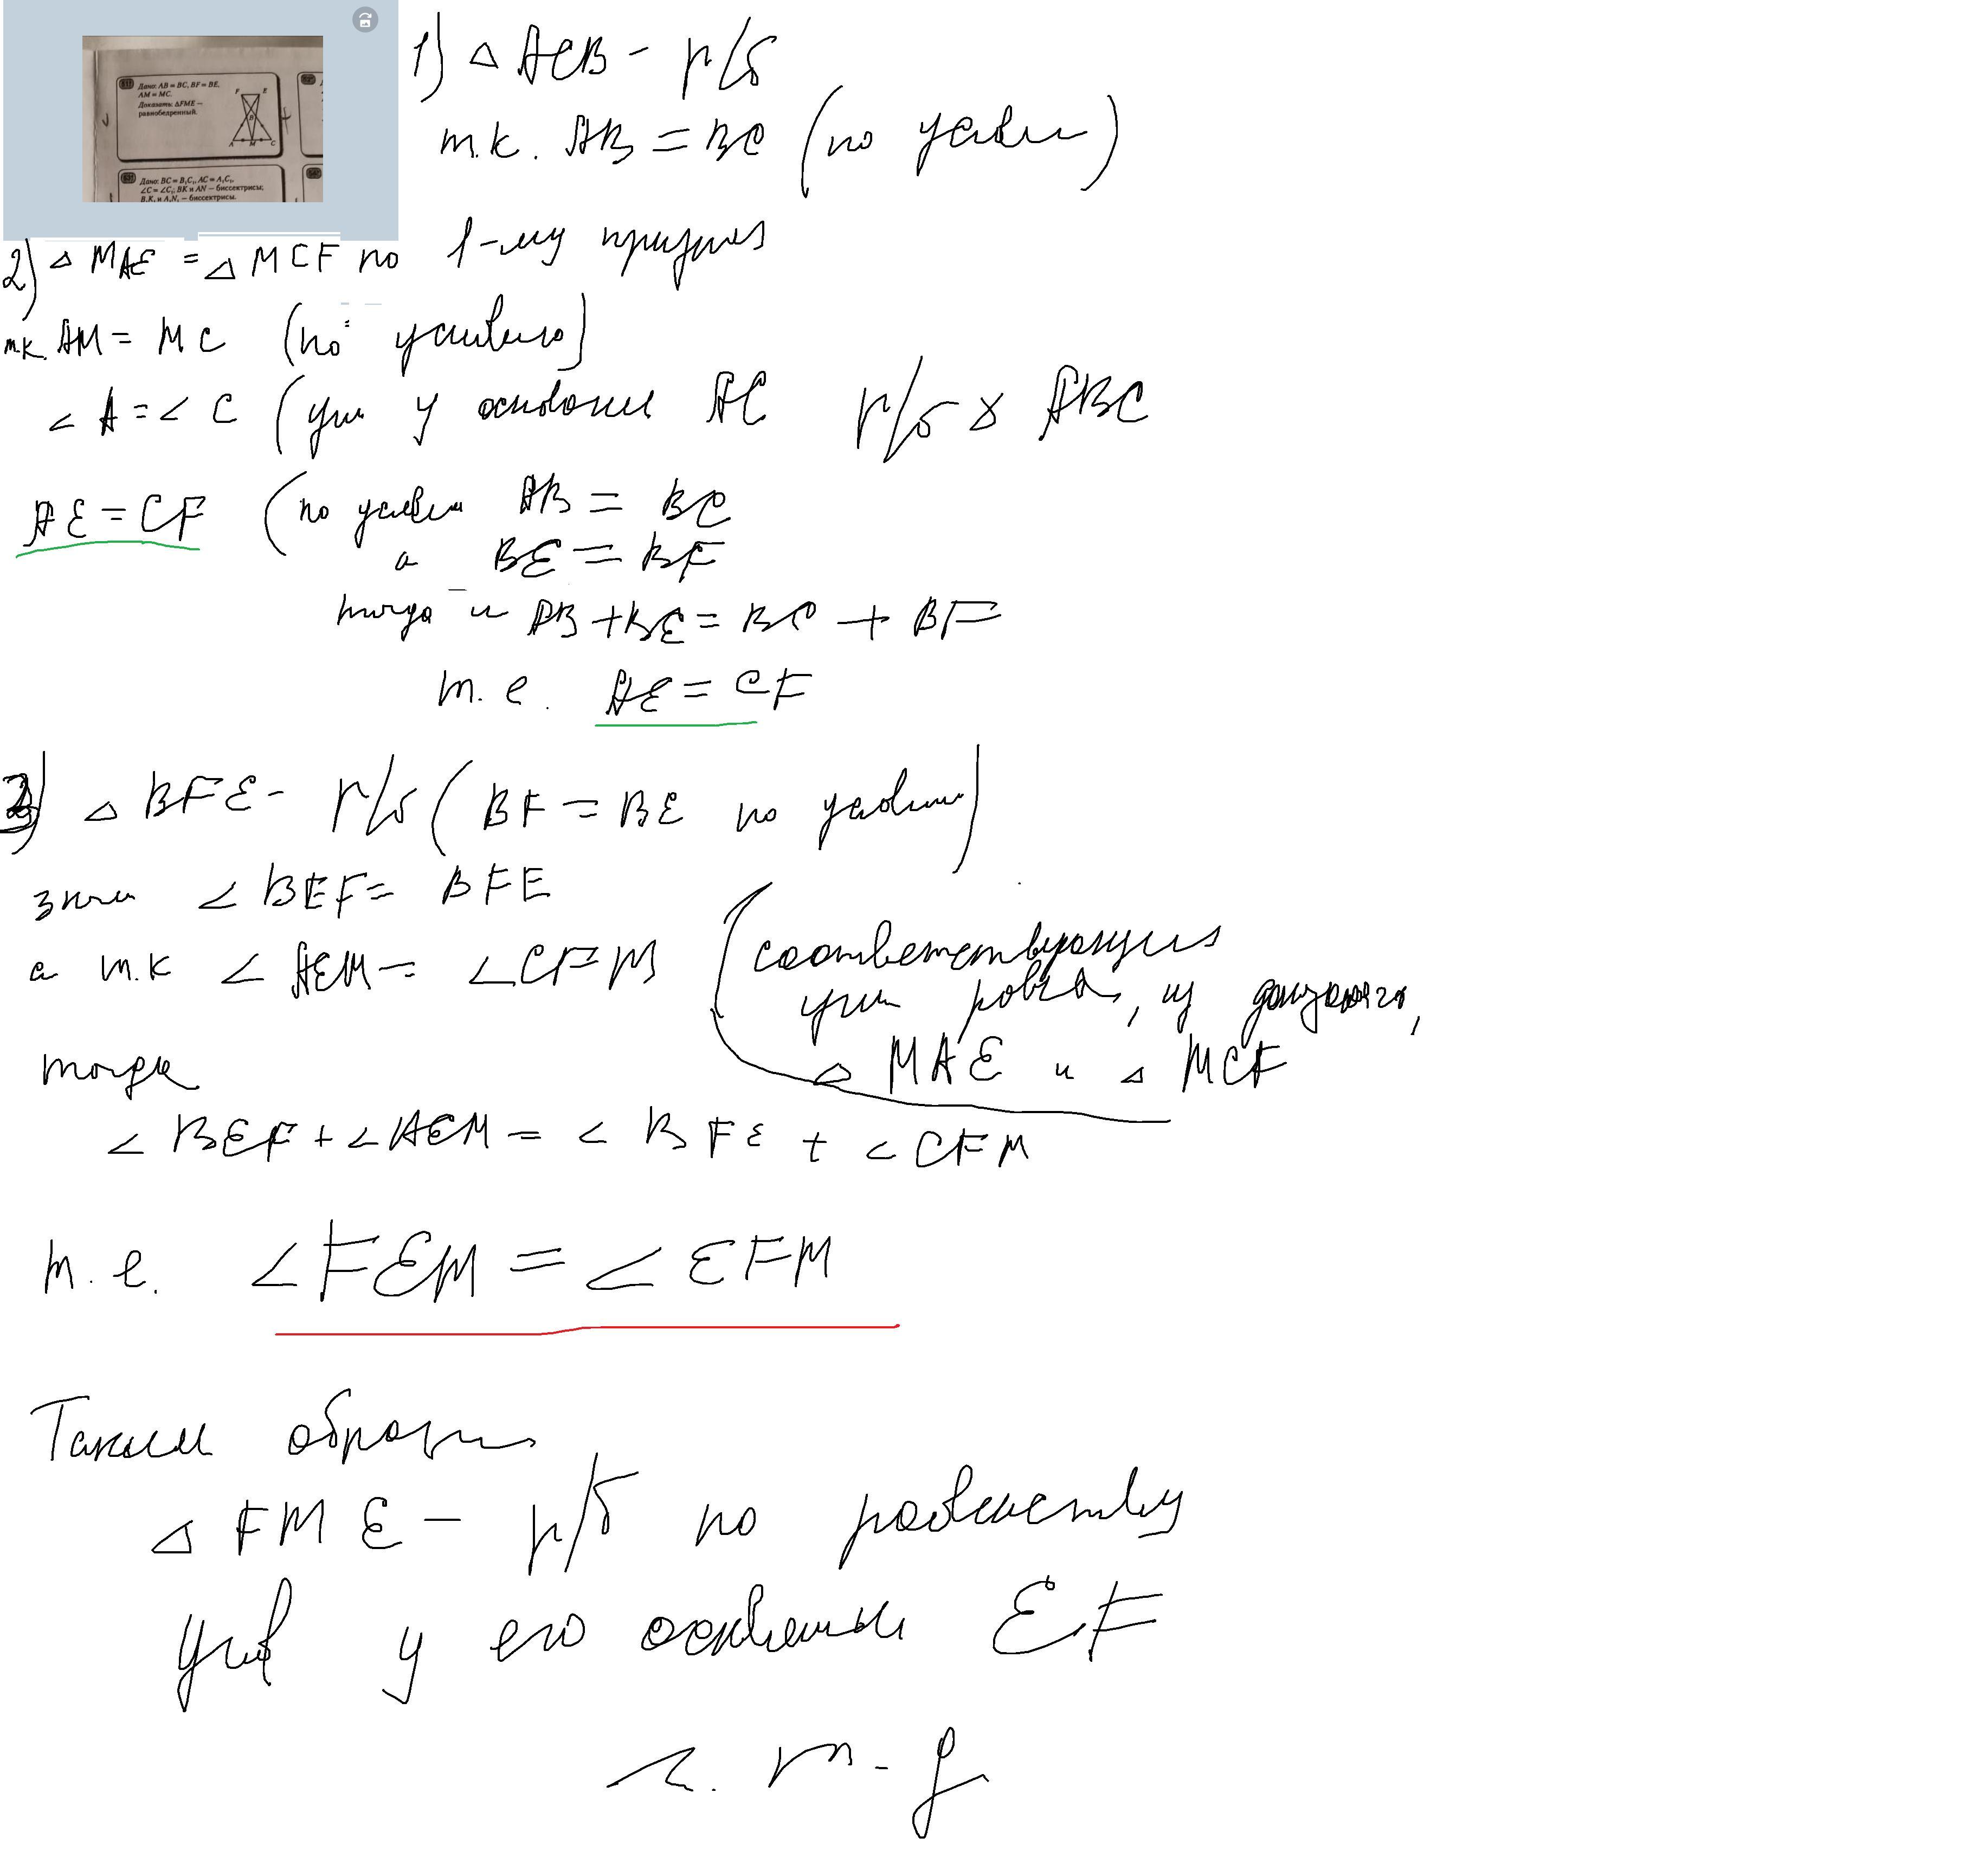 Дано: AB = BC, BF = BE,
AM = MC.
Доказать: △FME —
равнобедренный.
F E
B
A M C
Дано: BC = B₁C₁, AC = A₁C₁,
∠C = ∠C₁; BK и AN — биссектрисы;
B₁K₁ и A₁N₁ — биссектрисы.
1) △ ACB - р/б
т.к. AB = BC (по условию)
2) △ MAE = △ MCF по 1-му признаку
т.к. AM = MC (по условию)
∠ A = ∠ C (углы у основания AC р/б △ ABC
AE = CF (по условию AB = BC
а BE = BF
тогда и AB + BE = BC + BF
т.е. AE = CF
3) △ BFE - р/б (BF = BE по условию)
значит ∠ BEF = BFE
а т.к ∠ AEM = ∠ CFM (соответствующие
углы равны, из доказанного,
△ MAE и △ MCF
тогда
∠ BEF + ∠ AEM = ∠ BFE + ∠ CFM
т.е. ∠ FEM = ∠ EFM
Таким образом
△ FME - р/б по равенству
углов у его основания EF
ч. т-д